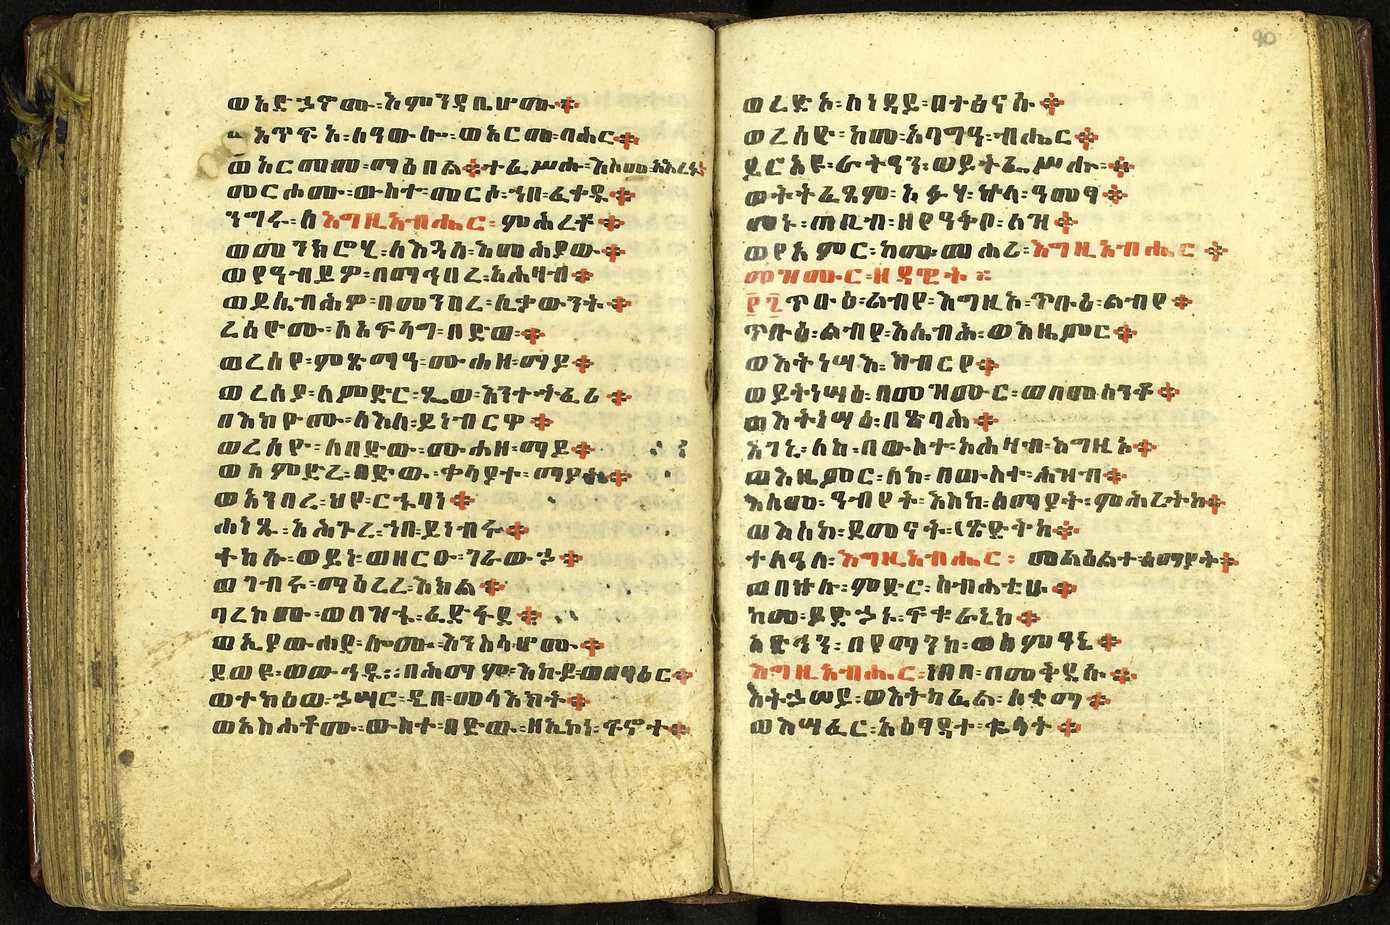 ወአድኃኖሙ፡እምንዳቤሆሙ።
አጥፍአ፡ለዓውሎ፡ወአርመመ፡ባሕር።
ወአርመመ፡ማዕበል።ተፈሥሑ፡እስመ፡አእረፉ።
መርሖሙ፡ውስተ፡መርሶ፡ኀበ፡ፈቀዱ።
ንግሩ፡ለእግዚአብሔር፡ምሕረቶ።
ወመንክሮሂ፡ለእጓለ፡እመሕያው።
ወየዓብይዎ፡በማኅበረ፡አሕዛብ።
ወይሴብሕዎ፡በመንበረ፡ሊቃውንት።
ረሰዮሙ፡ለአፍላግ፡በድወ።
ወረሰየ፡ምጽማዓ፡ሙሐዘ፡ማይ።
ወረሰያ፡ለምድር፡ጼው፡እንተ፡ትፈሪ።
በእከዮሙ፡ለእለ፡ይነብርዋ።
ወረሰዮ፡ለበድው፡ሙሐዘ፡ማይ።
ወለምድረ፡በድው፡ቀላያተ፡ማያት።
ወአንበረ፡ህየ፡ርኁባነ።
ሐነጹ፡አሕጉረ፡ኀበ፡ይነብሩ።
ተከሉ፡ወይነ፡ወዘርዑ፡ገራውኃ።
ወገብሩ፡ማዕረረ፡እክል።
ባረኮሙ፡ወበዝኁ፡ፈድፋደ።
ወኢያውሐደ፡ሎሙ፡እንስሳሆሙ።
ደወዩ፡ወውኅዱ፡በሕማም፡እኩይ፡ወበፃዕር።
ወተክዕወ፡ኃሣር፡ዲበ፡መላእክት።
ወአስሐቶሙ፡ውስተ፡በድው፡ዘኢኮነ፡ፍኖተ።
90
ወረድአ፡ለነዳይ፡በተፅናሱ።
ወረሰዮ፡ከመ፡አባግዓ፡ብሔር።
ይርአዩ፡ራትዓን፡ወይትፌሥሑ።
ወትትፈጸም፡አፉሃ፡ኵላ፡ዓመፃ።
መኑ፡ጠቢብ፡ዘየዓቅቦ፡ለዝ።
ወየአምር፡ከመ፡መሐሪ፡እግዚአብሔር።
መዝሙር፡ዘዳዊት።
፻፯ጥቡዕ፡ልብየ፡እግዚኦ፡ጥቡዕ፡ልብየ።
ጥቡዕ፡ልብየ፡እሴብሕ፡ወእዜምር።
ወእትነሣእ፡ክብርየ።
ወይትነሣዕ፡በመዝሙር፡ወበመሰንቆ።
ወእትነሣዕ፡በጽባሕ።
እገኒ፡ለከ፡በውስተ፡አሕዛብ፡እግዚኦ።
ወእዜምር፡ለከ፡በውስተ፡ሕዝብ።
እስመ፡ዓብየት፡እስከ፡ሰማያት፡ምሕረትከ።
ወእስከ፡ደመናት፡ጽድትከ።
ተለዓለ፡እግዚአብሔር፡መልዕልተ፡ሰማያት።
ወበኵሉ፡ምድር፡ስብሐቲሁ።
ከመ፡ይድኃኑ፡ፍቁራኒከ።
አድኅን፡በየማንከ፡ወስምዓኒ።
እግዚአብሔር፡ነበበ፡በመቅደሱ።
እትኃሠይ፡ወእትካፈል፡ሰቂማ።
ወእሣፈር፡አዕፃዳተ፡ቈላት።